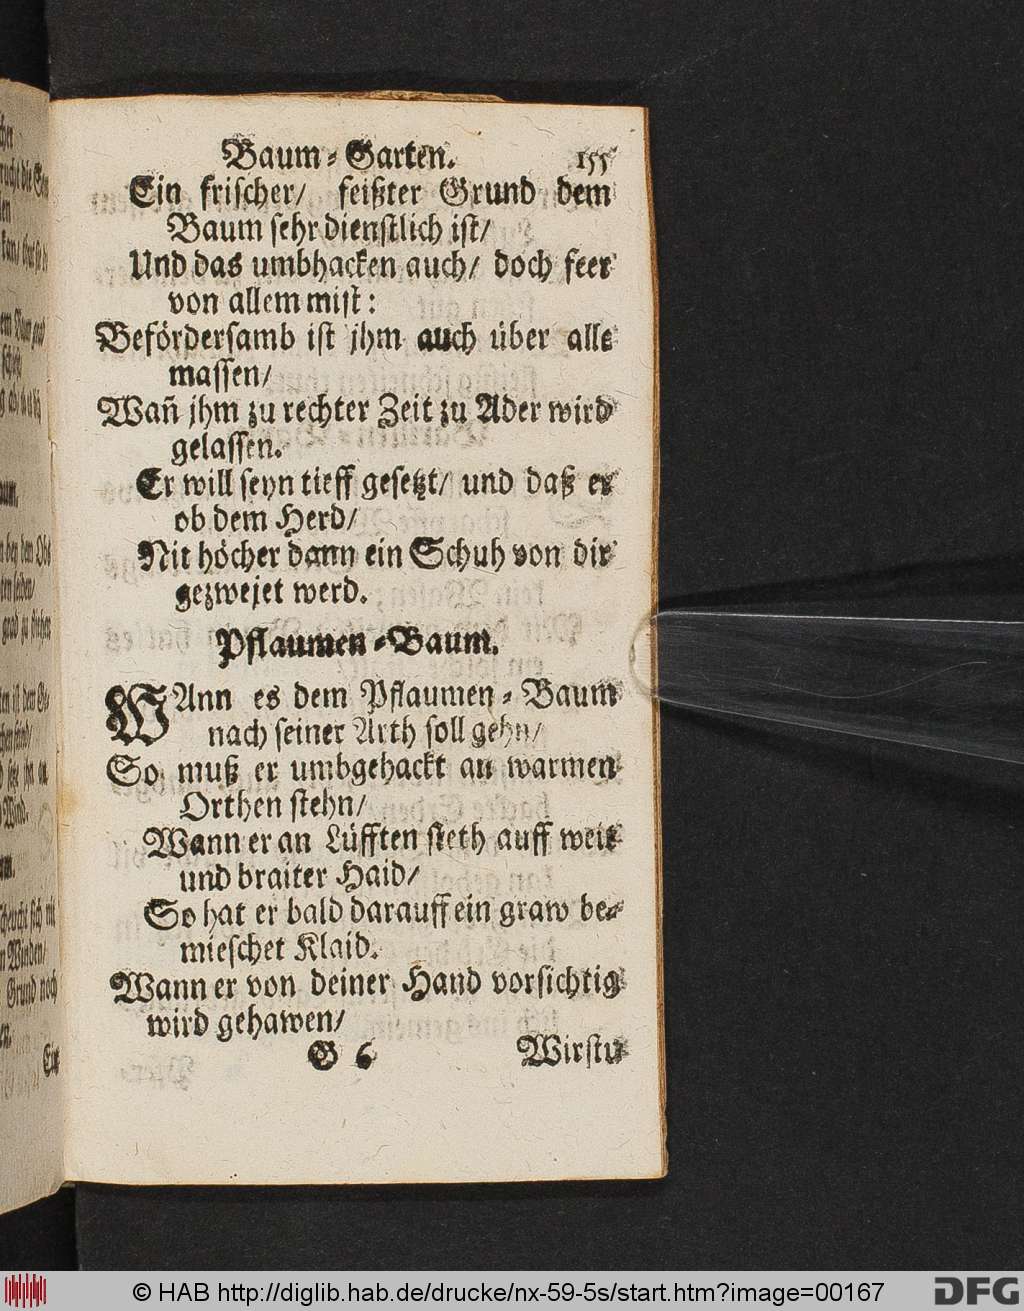 Baum-Garten. 155
Ein frischer/ feißter Grund dem
Baum sehr dienstlich ist/
Und das umbhacken auch/ doch feer
von allem mist:
Befördersamb ist jhm auch über alle
massen/
Wañ jhm zu rechter Zeit zu Ader wird
gelassen.
Er will seyn tieff gesetzt/ und daß er
ob dem Herd/
Nit höcher dann ein Schuh von dir
gezwejet werd.
Pflaumen-Baum.
WAnn es dem Pflaumen-Baum
nach seiner Arth soll gehn/
So muß er umbgehackt an warmen
Orthen stehn/
Wann er an Lüfften steth auff weit
und braiter Haid/
So hat er bald darauff ein graw be-
mieschet Klaid.
Wann er von deiner Hand vorsichtig
wird gehawen/
G 6 Wirstu
© HAB http://diglib.hab.de/drucke/nx-59-5s/start.htm?image=00167 DFG